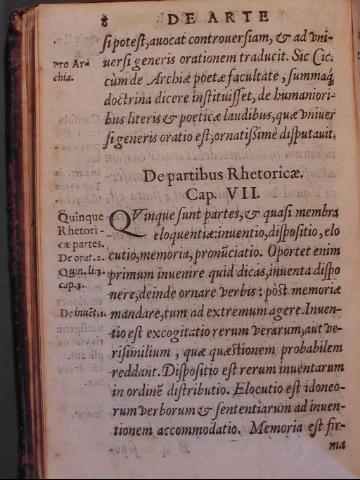 8 DE ARTE
si potest, auocat controuersiam, & ad vni-
uersi generis orationem traducit. Sic Cic.
pro Ar-
chia.
cùm de Archiæ poëtæ facultate, summaq́;
doctrina dicere instituisset, de humaniori-
bus literis & poëticæ laudibus, quæ vniuer
si generis oratio est, ornatissimè disputauit.
De partibus Rhetoricæ.
Cap. VII.
Quinque
Rhetori-
cæ partes.
De orat. 2.
Quin. li. 3.
cap. 3.
De inuēt. 1.
QVinque sunt partes, & quasi membra
eloquentiæ: inuentio, dispositio, elo
cutio, memoria, pronūciatio. Oportet enim
primum inuenire quid dicas, inuenta dispo
nere, deinde ornare verbis: pòst memoriæ
mandare, tum ad extremum agere. Inuen-
tio est excogitatio rerum verarum, aut ve-
risimilium, quæ quæstionem probabilem
reddant. Dispositio est rerum inuentarum
in ordinē distributio. Elocutio est idoneo-
rum verborum & sententiarum ad inuen-
tionem accommodatio. Memoria est fir-
ma